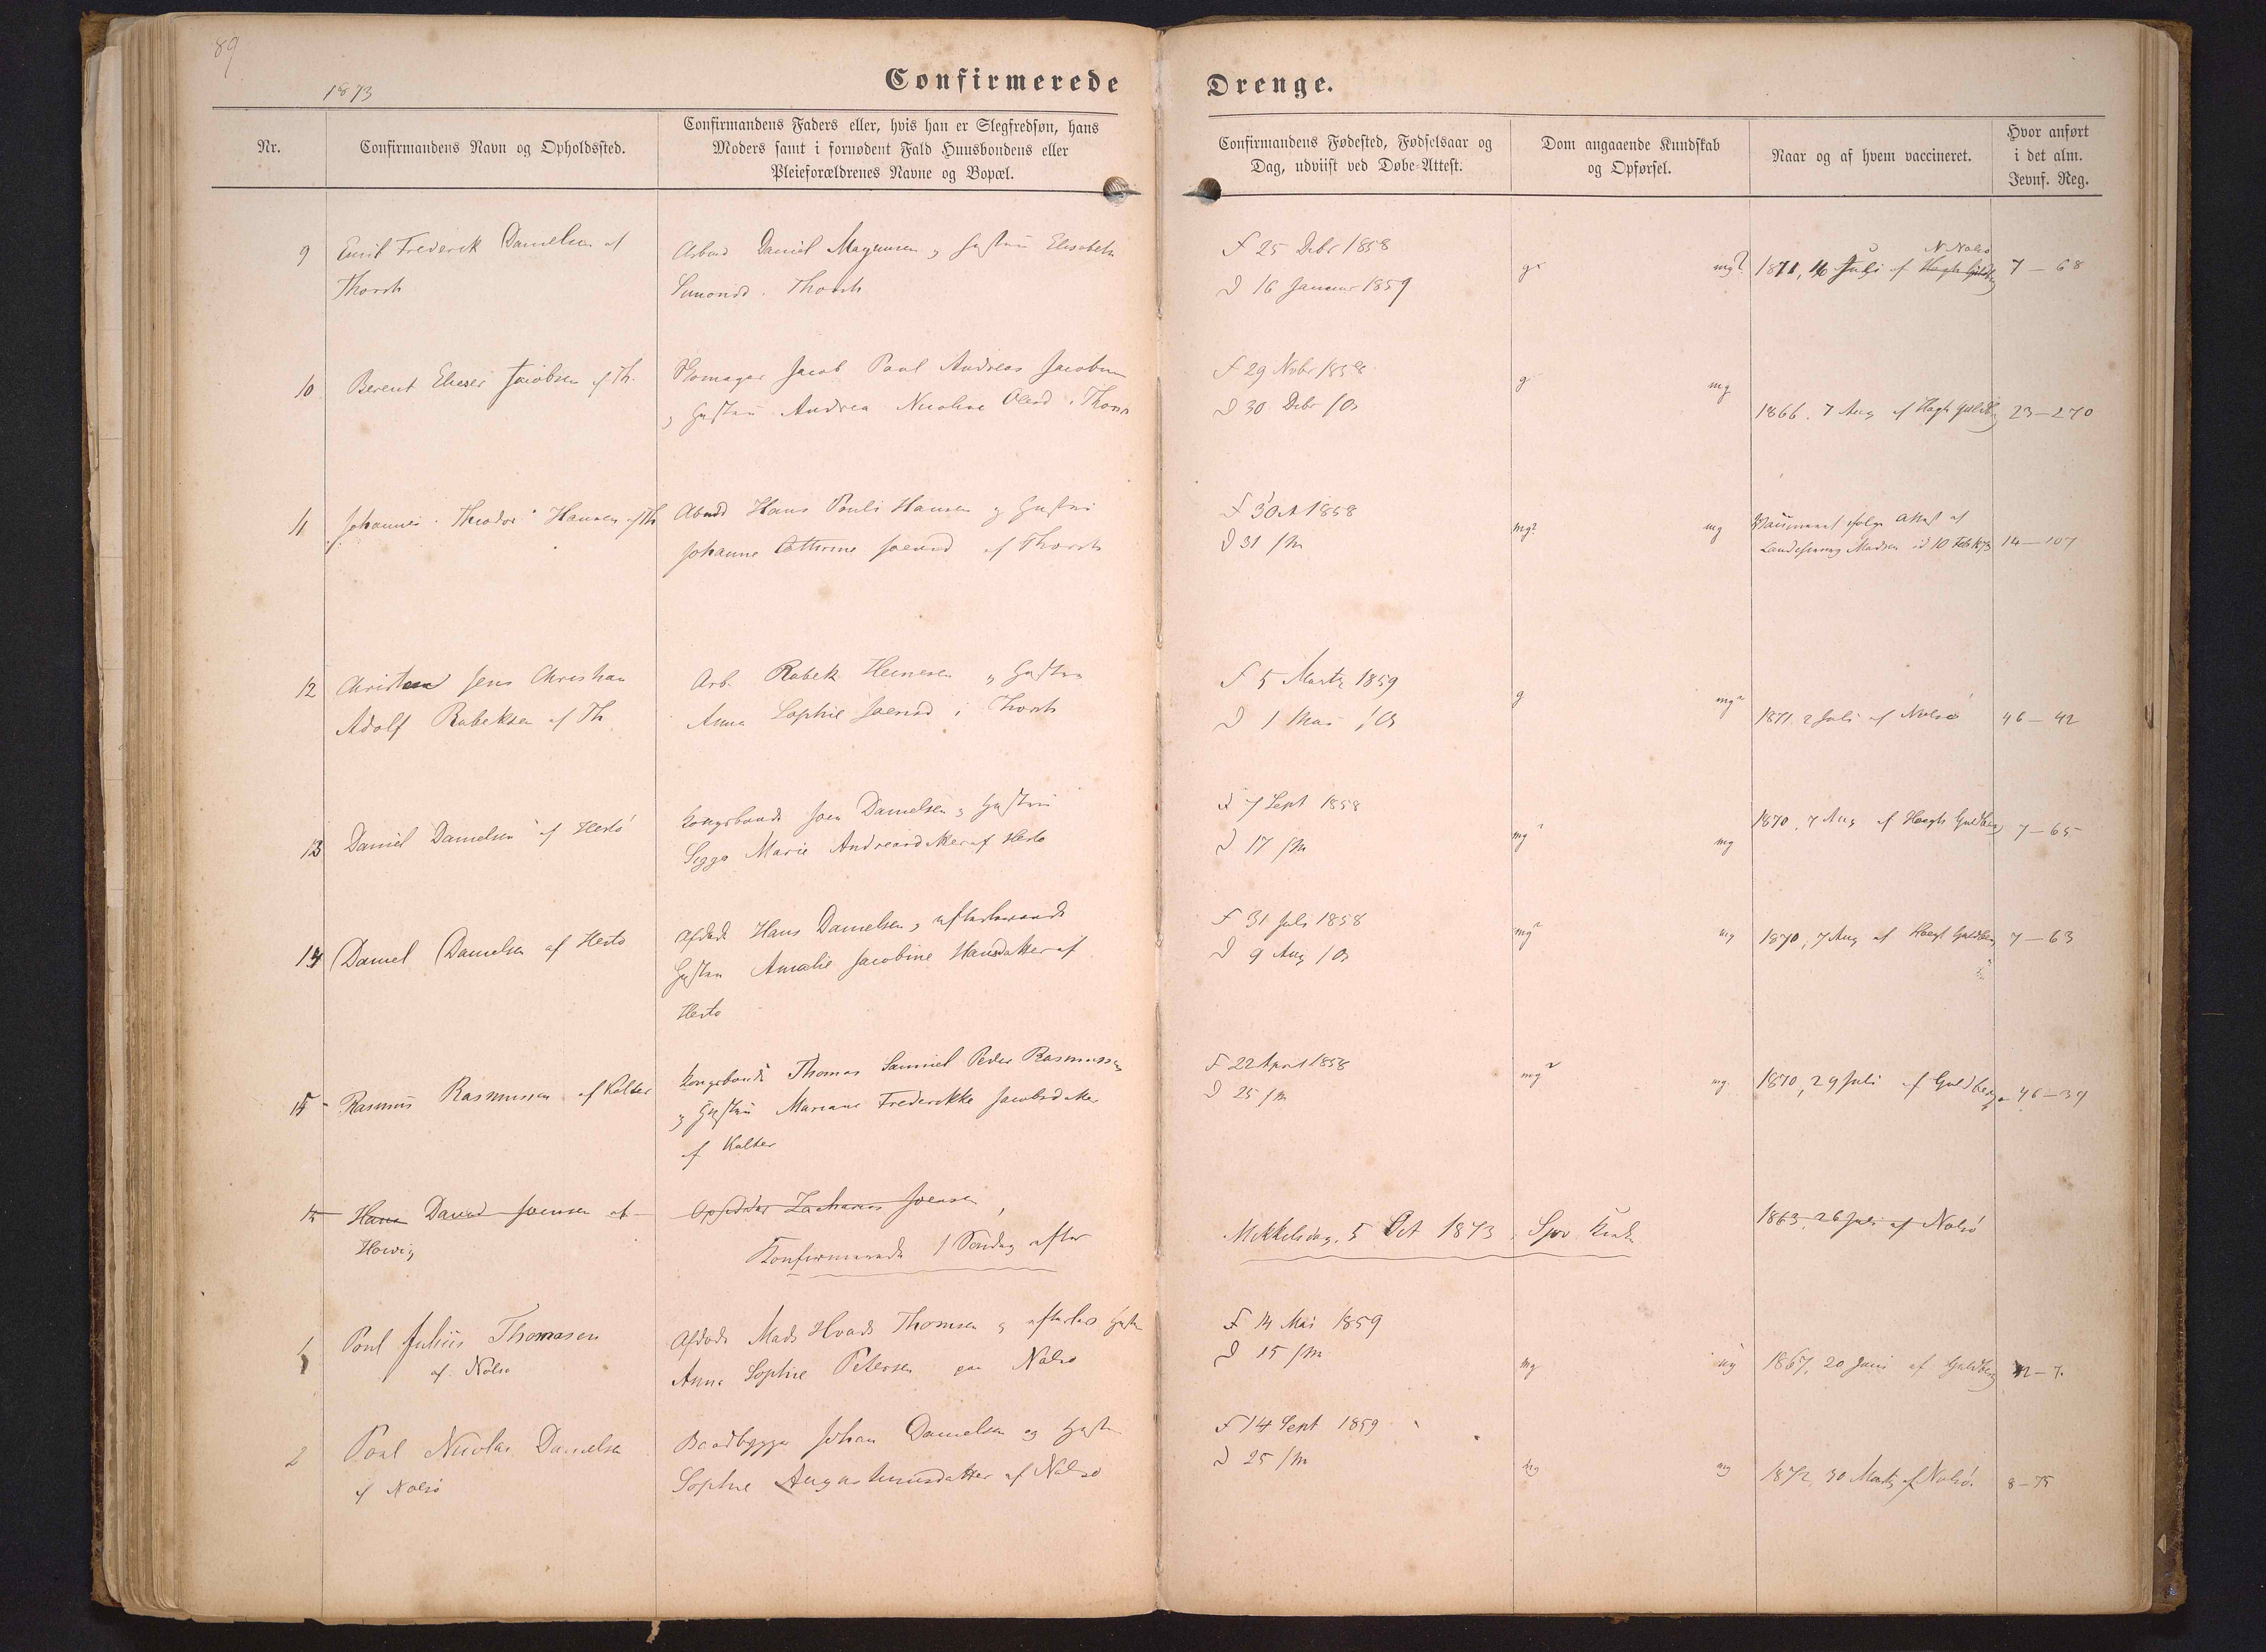 89
1873
Confirmerede Drenge.
Nr.
Confirmandens Navn og Opholdssted.
Confirmandens Faders eller, hvis han er Slegfredsøn, hans
Moders samt i fornødent Fald Huusbondens eller
Pleieforældrenes Navne og Bopæl.
Confirmandens Fødested, Fødselsaar og
Dag, udviist ved Døbe-Attest.
Dom angaaende Kundskab
og Opførsel.
Naar og af hvem vaccineret.
Hvor anført
i det alm.
Jevnf. Reg.
9 Emil Frederik Danielsen af
Thorsh
Daniel Magnusen og Hustru Elisabeth
Simonsd. Thorsh
F 25 Debr 1858
D 16 Januar 1859
g
mg?
N. Nolsø
1871, 16 Juli af Høgh Guldb
7 – 68
10 Berent Elieser Jacobsen af Th.
Skomager Jacob Poul Andreas Jacobsen
og Hustru Andrea Nicoline Olesd i Thorsh
F 29 Nvbr 1858
D 30 Debr
g
mg
1866. 7 Aug af Høgh Guldb
23 – 270
11 Johannes Theodor Hansen af Th
Hans Pouli Hansen og Hustru
Johanne Cathrine Joensd af Thorsh
F 3 Oct 1858
D 31 /m
mg?
mg
Attest af
Madsen 10 Feb 1873
14 – 107
12 Christen Jens Christian
Adolf Robeksen af Th
Arb. Robek Heinesen og Hustru
Anna Sophie Joensd i Thorsh
F 5 Marts 1859
D 1 Mai
g
mg
1871. 2 Juli af Nolsø
46 – 42
13 Daniel Danielsen af Hestø
Kongsbonde Joen Danielsen og Hustru
Sigga Marie Andreasdatter af Hestø
F 7 Sept 1858
D 17 /m
mg
mg
1870, 7 Aug af Høegh Guldberg
7 – 65
14 Daniel Danielsen af Hestø
Afdøde Hans Danielsen og efterlevende
Hustru Amalie Jacobine Hansdatter af
Hestø
F 31 Juli 1858
D 9 Aug
mg
mg
1870, 7 Aug af Høegh Guldberg
7 – 63
15 Rasmus Rasmussen af Kolter
Kongsbonde Thomas Samuel Peder Rasmussen
og Hustru Mariane Frederikke Jacobsdatter
af Kolter
F 22 April 1858
D 25 /m
mg
mg.
1870, 29 Juli af Guldberg
46 – 39
Hans David Joensen af
Howig
Opsidder Zacharis Joensen
1863, 26 Juli af Nolsø
Konfirmerede 1 Søndag efter
Mikkelsdag, 5 Oct 1873
1 Poul Julius Thomasen
af Nolsø
Afdøde Mads Thomsen og Hustru
Anna Sophie Petersen paa Nolsø
F 14 Mai 1859
D 15 /m
mg
mg
1867, 20 Juni af Guldberg
2 Poul Nicolai Danielsen
af Nolsø
Baadbygger Johan Danielsen og Hustru
Sophie Augustinusdatter af Nolsø
F 14 Sept 1859
D 25 /m
mg
mg
1872, 30 Marts af Nolsø.
8 – 75